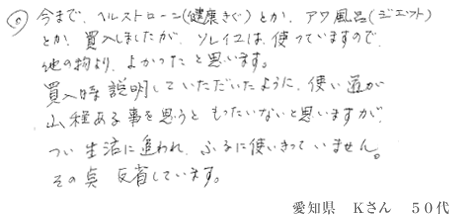 ◎ 今まで、ヘルストローン(健康きぐ)とか、アワ風呂(ジェット)
とか、買入しましたが、ソレイユは、使っていますので、
他の物より、よかったと思います。
買入時説明していただいたように、使い道が
山程ある事を思うと もったいないと思いますが、
つい 生活に追われ、ふるに使いきっていません。
その点 反省しています。
愛知県 Kさん 50代